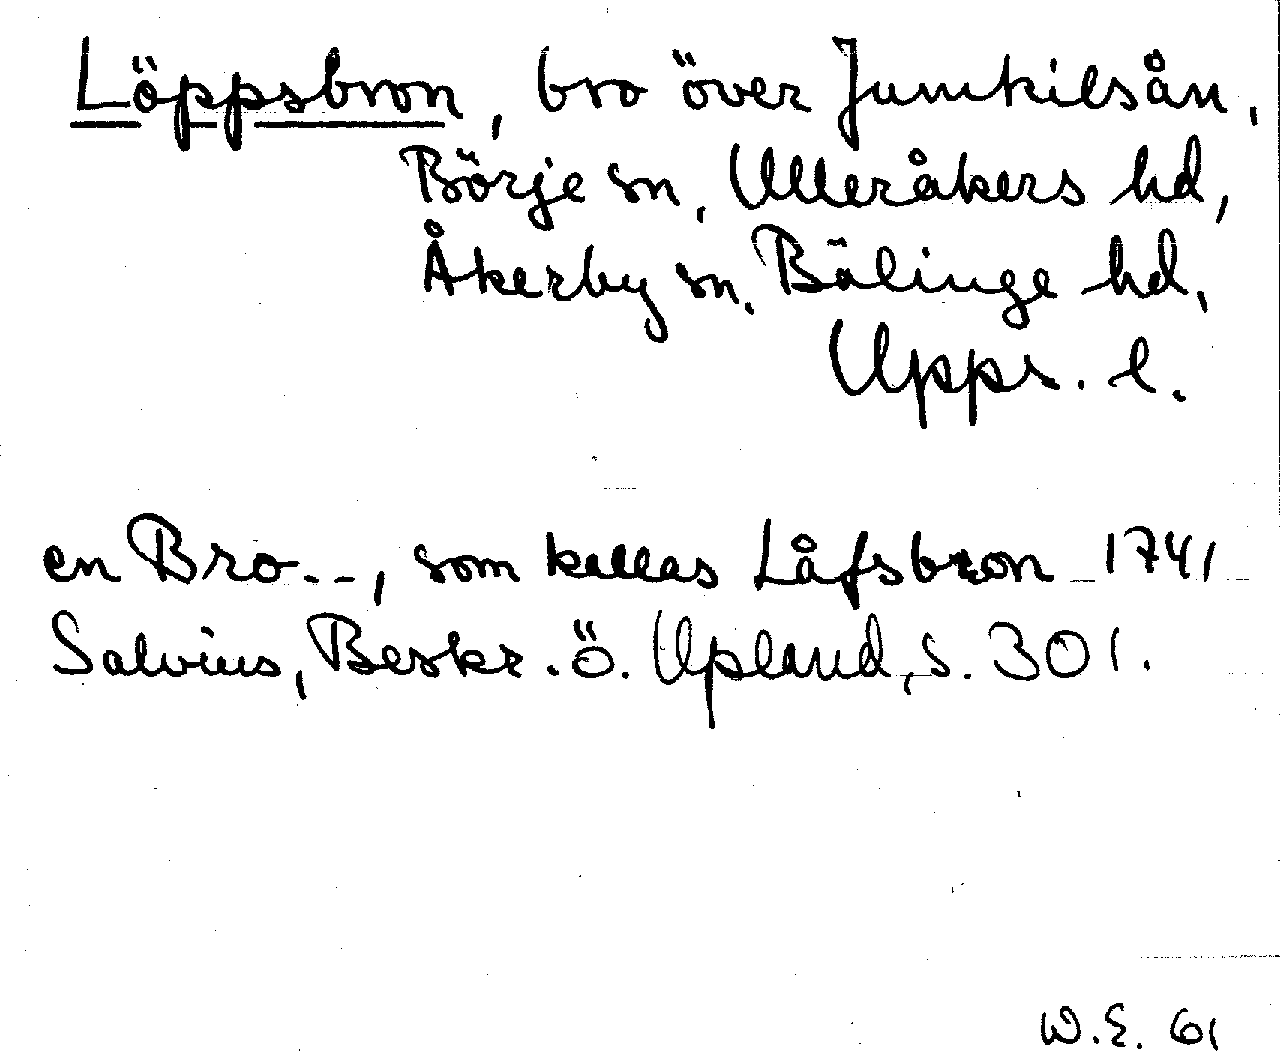 Löppsbron, bro över Jumkilsån,
Börje sn, Ulleråkers hd,
Åkerby sn, Bälinge hd,
Upps. l.
en Bro--, som kallas Låfsbron 1741
Salvius, Beskr. ö. Upland, s. 301.
W.E. 61